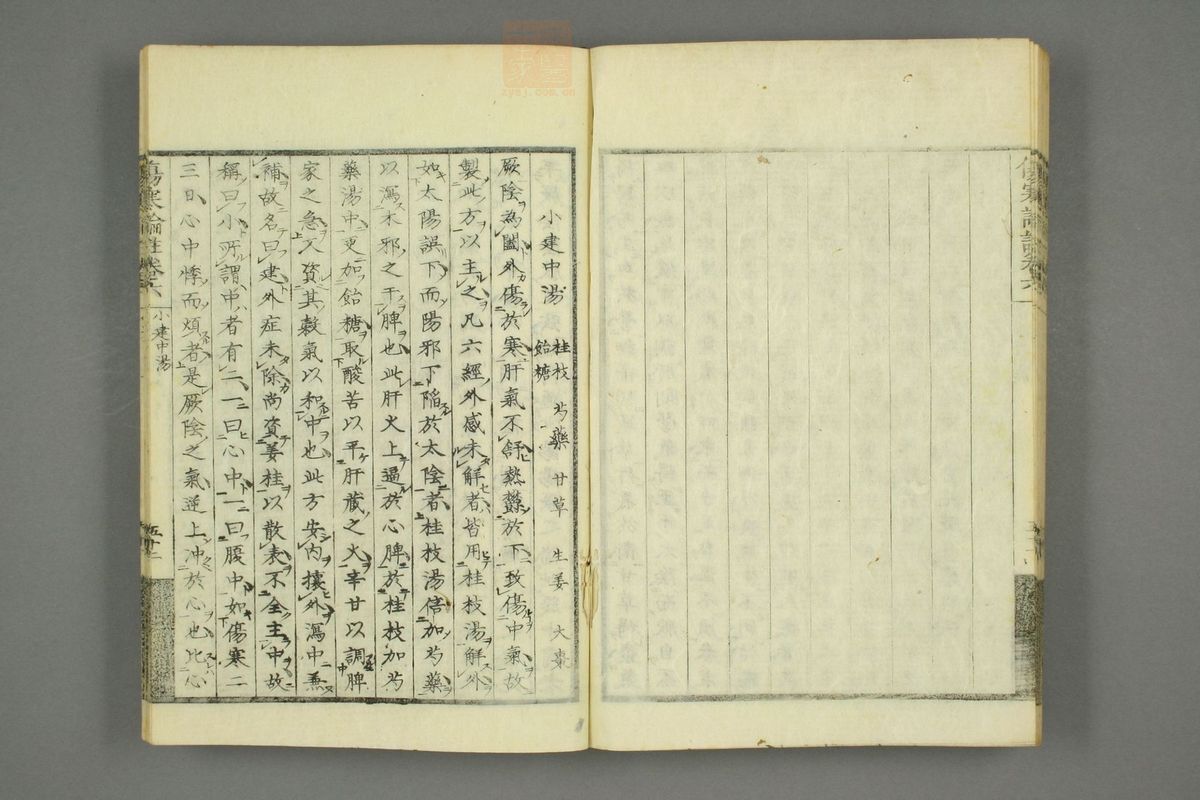 傷寒論註卷六
小建中湯 桂枝 芍藥 甘草 生姜 大棗
飴糖
厥陰為闔外傷於寒肝氣不舒熱鬱於下致傷中氣故
製此方以主之凡六經外感未解者皆用桂枝湯解外
如太陽誤下而陽邪下陷於太陰者桂枝湯倍加芍藥
以瀉木邪之干脾也此肝火上逼於心脾於桂枝加芍
藥湯中更加飴糖取酸苦以平肝藏之火辛甘以調脾
家之急又資其穀氣以和中也此方安內攘外瀉中兼
補故名曰建外症未除尚資姜桂以散表不全主中故
稱曰小所謂中者有二一曰心中一曰腹中如傷寒二
三日心中悸而煩者是厥陰之氣逆上冲於心也比心
傷寒論註卷六
小建中湯
五十二
zysj.com.cn